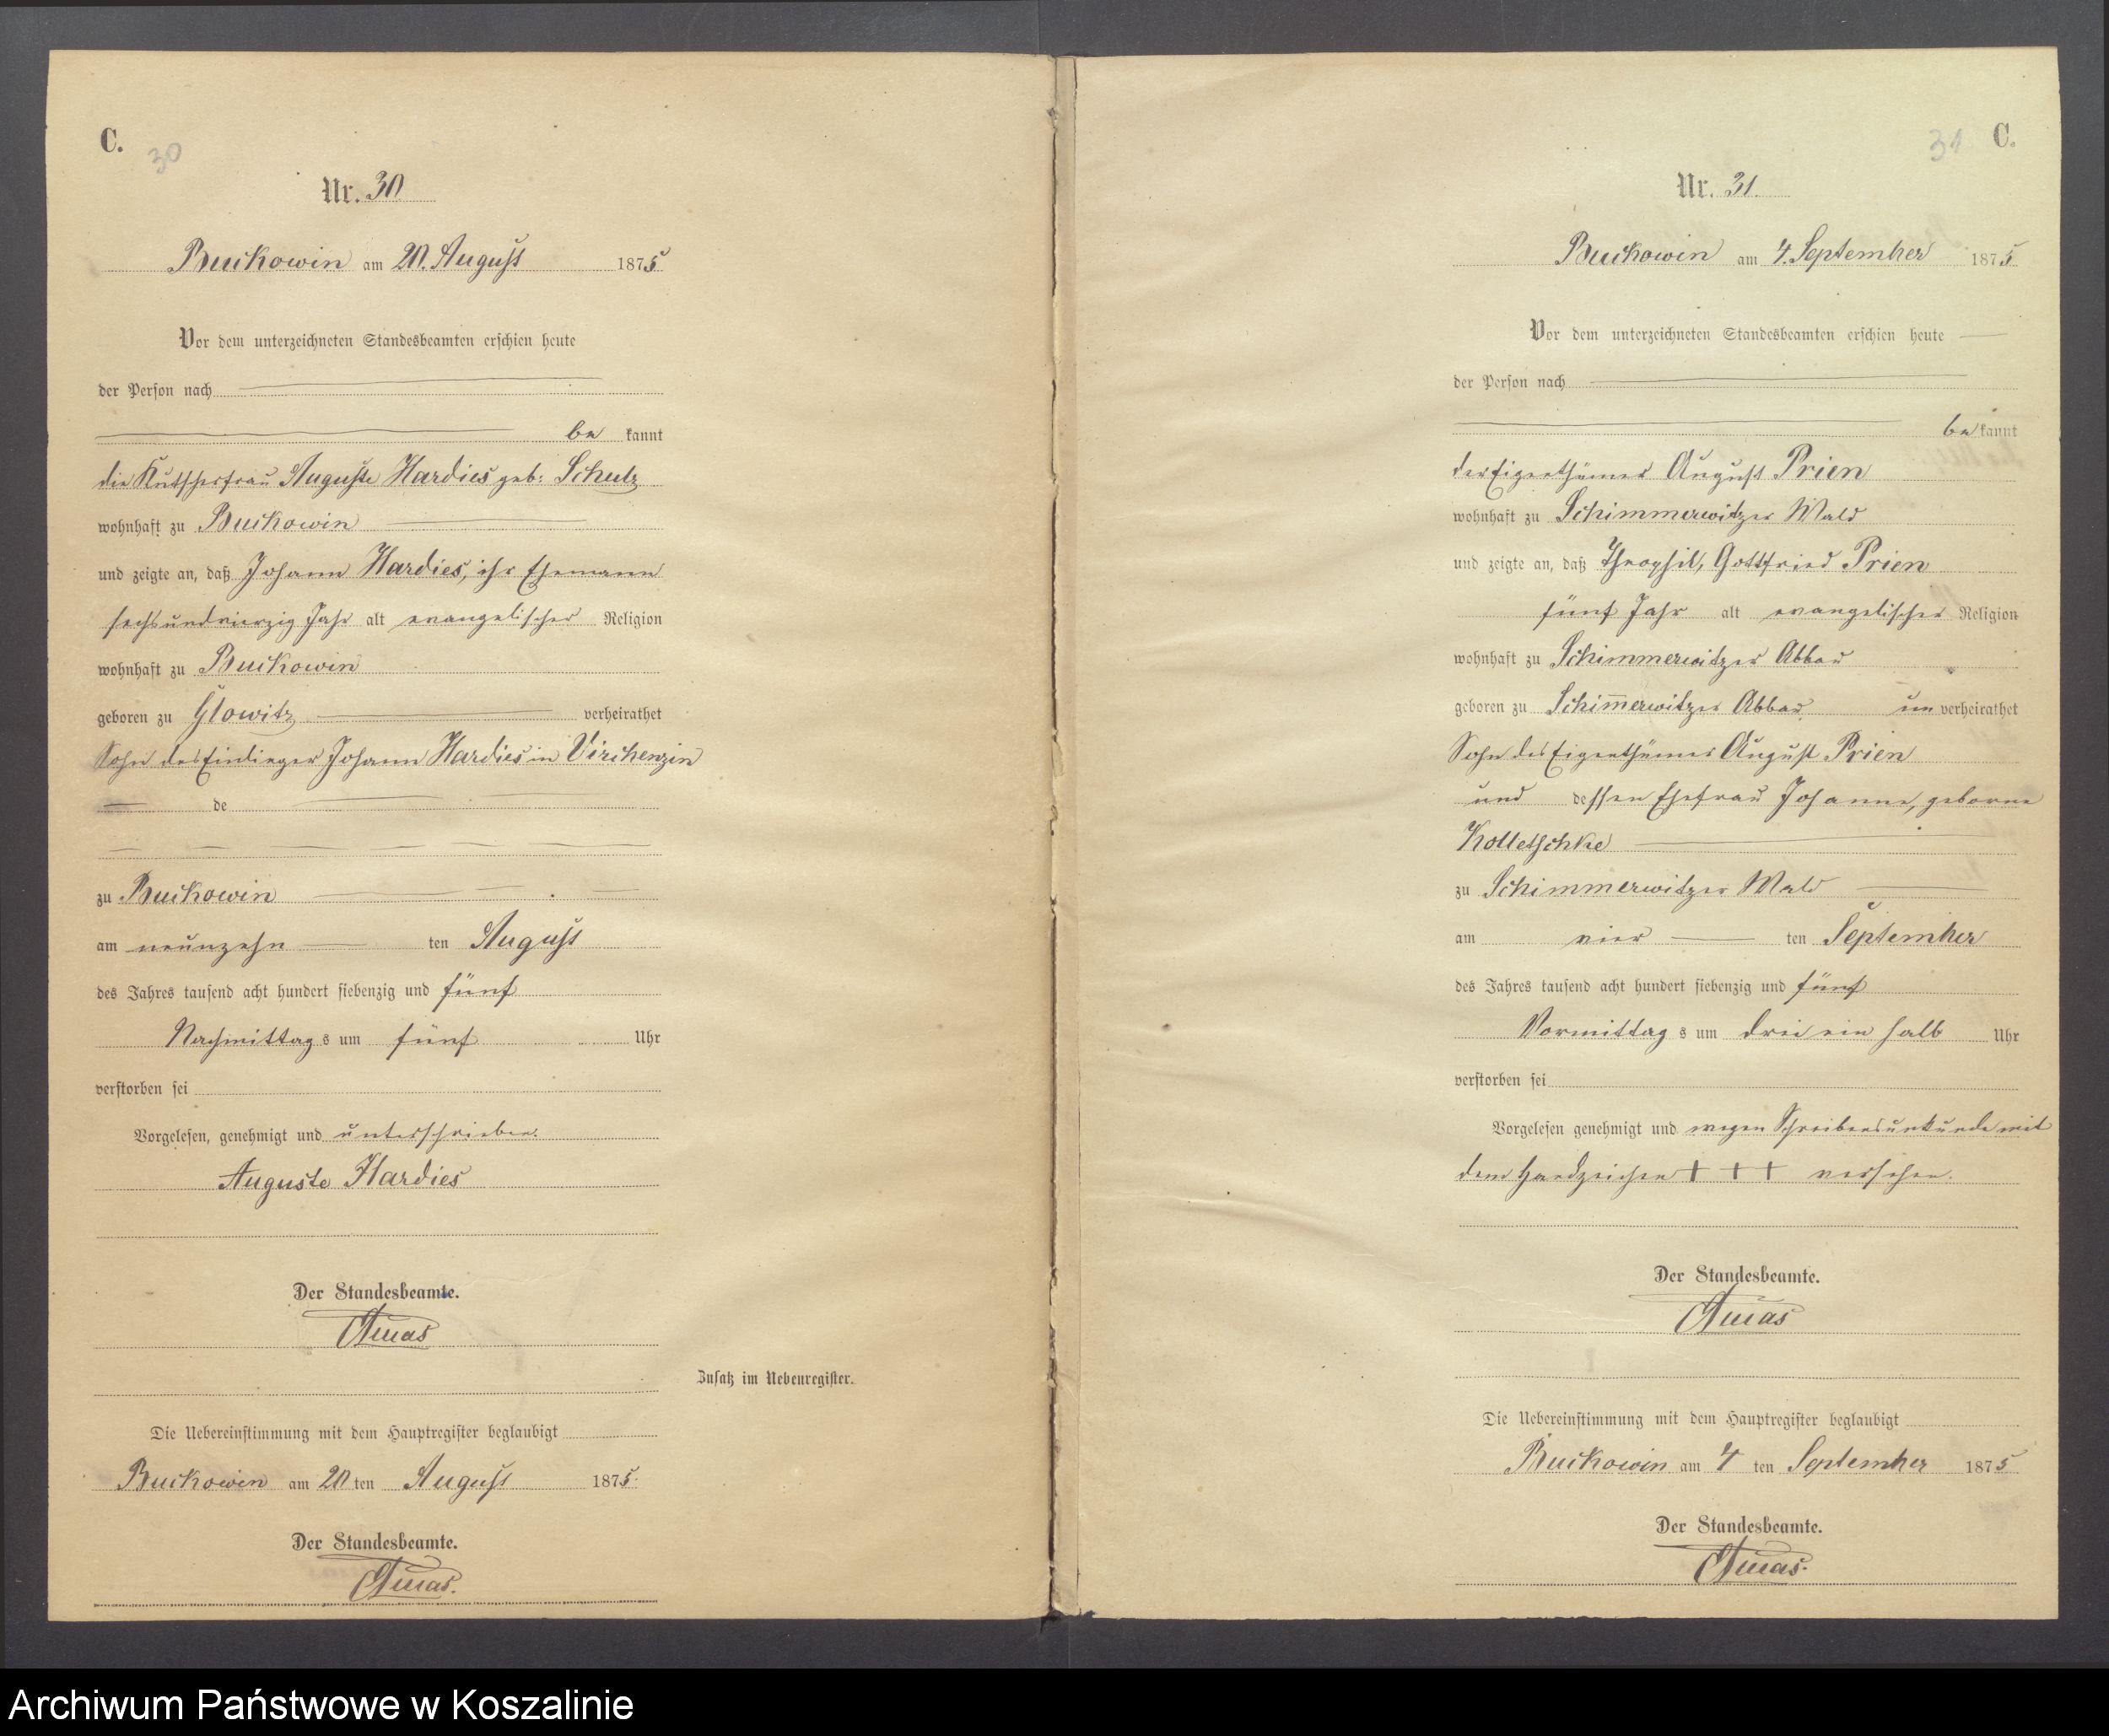 C.
30
Nr. 30
Buckowin am 20. August 1875
Vor dem unterzeichneten Standesbeamten erschien heute
der Person nach
be kannt
die Kutscherfrau Auguste Hardies geb: Schulz
wohnhaft zu Buckowin
und zeigte an, daß Johann Hardies, ihr Ehemann
sechsundvierzig Jahr alt evangelischer Religion
wohnhaft zu Buckowin
geboren zu Glowitz verheirathet
Sohn des Einlieger Johann Hardies in Virchenzin
de
zu Buckowin
am neunzehn ten August
des Jahres tausend acht hundert siebenzig und fünf
Nachmittag s um fünf Uhr
verstorben sei
Vorgelesen, genehmigt und unterschrieben.
Auguste Hardies
Der Standesbeamte.
Zusatz im Nebenregister.
Die Uebereinstimmung mit dem Hauptregister beglaubigt
Buckowin am 20 ten August 1875.
Der Standesbeamte.
31 C.
Nr. 31.
Buckowin am 4. September 1875
Vor dem unterzeichneten Standesbeamten erschien heute
der Person nach
be kannt
der Eigenthümer August Prien
wohnhaft zu Schimmerwitzer Wald
und zeigte an, daß Theophil, Gottfried Prien
fünf Jahr alt evangelischer Religion
wohnhaft zu Schimmerwitzer Abbau
geboren zu Schim̅erwitzer Abbau un verheirathet
Sohn des Eigenthümer August Prien
und dessen Ehefrau Johanne, geborne
Kolletschke
zu Schimmerwitzer Wald
am vier ten September
des Jahres tausend acht hundert siebenzig und fünf
Vormittag s um drei ein halb Uhr
verstorben sei
Vorgelesen genehmigt und wegen Schreibensunkunde mit
dem Handzeichen + + + versehen.
Der Standesbeamte.
Die Uebereinstimmung mit dem Hauptregister beglaubigt
Buckowin am 4 ten September 1875
Der Standesbeamte.
Archiwum Państwowe w Koszalinie